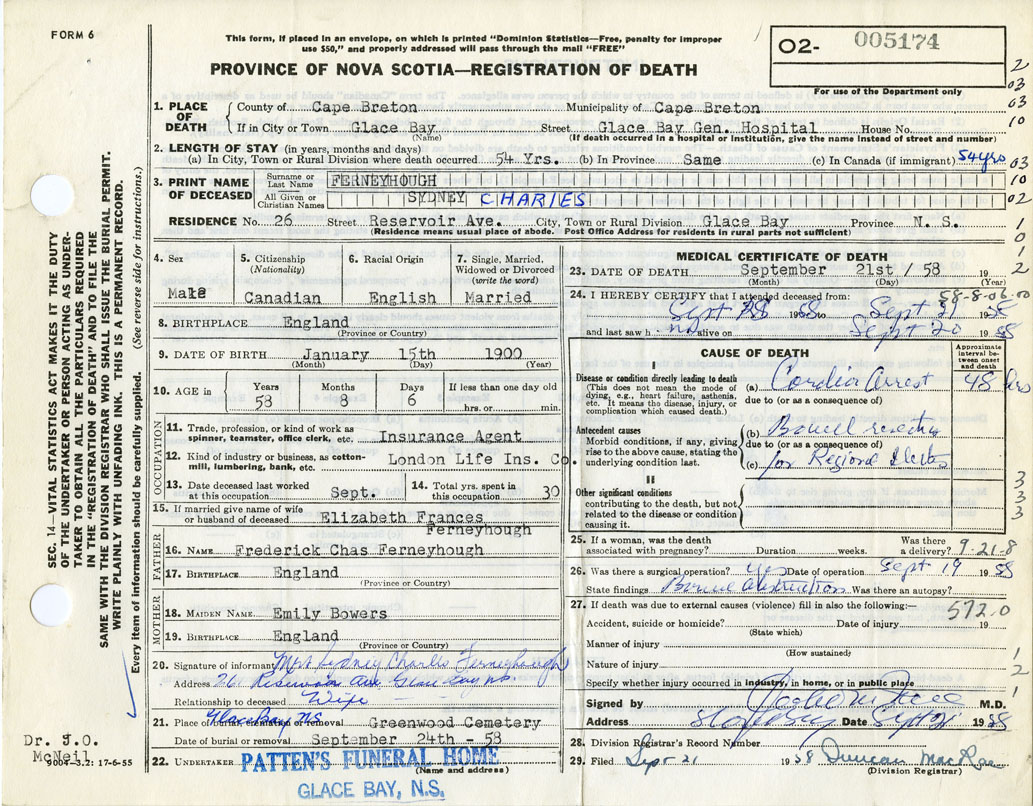 FORM 6
This form, if placed in an envelope, on which is printed "Dominion Statistics—Free, penalty for improper
use $50," and properly addressed will pass through the mail "FREE"
PROVINCE OF NOVA SCOTIA—REGISTRATION OF DEATH
02- 005174
For use of the Department only
SEC. 14—VITAL STATISTICS ACT MAKES IT THE DUTY
OF THE UNDERTAKER OR PERSON ACTING AS UNDER-
TAKER TO OBTAIN ALL THE PARTICULARS REQUIRED
IN THE "REGISTRATION OF DEATH" AND TO FILE THE
SAME WITH THE DIVISION REGISTRAR WHO SHALL ISSUE THE BURIAL PERMIT.
WRITE PLAINLY WITH UNFADING INK. THIS IS A PERMANENT RECORD.
Every item of information should be carefully supplied. (See reverse side for instructions.)
1. PLACE OF DEATH County of Cape Breton Municipality of Cape Breton
If in City or Town Glace Bay Street Glace Bay Gen. Hospital House No.
(Name) (If death occurred in a hospital or institution, give the name instead of street and number)
2. LENGTH OF STAY (in years, months and days)
(a) In City, Town or Rural Division where death occurred 54 Yrs. (b) In Province Same (c) In Canada (if immigrant) 54 yrs
3. PRINT NAME OF DECEASED Surname or Last Name FERNEYHOUGH
All Given or Christian Names SYDNEY CHARLES
RESIDENCE No. 26 Street Reservoir Ave. City, Town or Rural Division Glace Bay Province N. S.
(Residence means usual place of abode. Post Office Address for residents in rural parts not sufficient)
4. Sex Male
5. Citizenship (Nationality) Canadian
6. Racial Origin English
7. Single, Married, Widowed or Divorced (write the word) Married
8. BIRTHPLACE England
(Province or Country)
9. DATE OF BIRTH January 15th 1900
(Month) (Day) (Year)
10. AGE in Years 58 Months 8 Days 6 If less than one day old hrs. or min.
OCCUPATION
11. Trade, profession or kind of work as spinner, teamster, office clerk, etc. Insurance Agent
12. Kind of industry or business, as cotton-mill, lumbering, bank, etc. London Life Ins. Co.
13. Date deceased last worked at this occupation Sept. 14. Total yrs. spent in this occupation 30
15. If married give name of wife or husband of deceased Elizabeth Frances
Ferneyhough
FATHER
16. NAME Frederick Chas Ferneyhough
17. BIRTHPLACE England
(Province or Country)
MOTHER
18. MAIDEN NAME Emily Bowers
19. BIRTHPLACE England
(Province or Country)
20. Signature of informant Mrs Sydney Charles Ferneyhough
Address 26 Reservoir Ave Glace Bay NS.
Relationship to deceased Wife
Glace Bay NS
21. Place of burial, cremation or removal Greenwood Cemetery
Date of burial or removal September 24th - 58
22. UNDERTAKER PATTEN'S FUNERAL HOME
(Name and address)
GLACE BAY, N.S.
Dr. J.O.
McNeil
9004-3.2: 17-6-55
MEDICAL CERTIFICATE OF DEATH
23. DATE OF DEATH September 21st / 58 19
(Month) (Day) (Year)
58-8-06-00
24. I HEREBY CERTIFY that I attended deceased from:
Sept 1958 to Sept 21 1958
and last saw h im alive on Sept 20 1958
CAUSE OF DEATH
Approximate interval between onset and death
I
Disease or condition directly leading to death
(This does not mean the mode of dying, e.g., heart failure, asthenia, etc. It means the disease, injury, or complication which caused death.)
(a) Cardiac Arrest 48 hrs
due to (or as a consequence of)
Antecedent causes
Morbid conditions, if any, giving rise to the above cause, stating the underlying condition last.
(b) Bowel resection
due to (or as a consequence of)
(c) for Regional Ileitis
II
Other significant conditions
contributing to the death, but not related to the disease or condition causing it.
25. If a woman, was the death associated with pregnancy? Duration weeks. Was there a delivery? 9-21-8
26. Was there a surgical operation? yes Date of operation Sept 19 1958
State findings Bowel obstruction Was there an autopsy?
27. If death was due to external causes (violence) fill in also the following:— 572.0
Accident, suicide or homicide? Date of injury 19
(State which)
Manner of injury
(How sustained)
Nature of injury
Specify whether injury occurred in industry, in home, or in public place
Signed by M.D.
Address Glace Bay Date Sept 21 1958
28. Division Registrar's Record Number
29. Filed Sept 21 1958 Duncan MacRae
(Division Registrar)
2
03
03
10
03
10
02
1
0
1
2
3
3
3
3
1
2
1